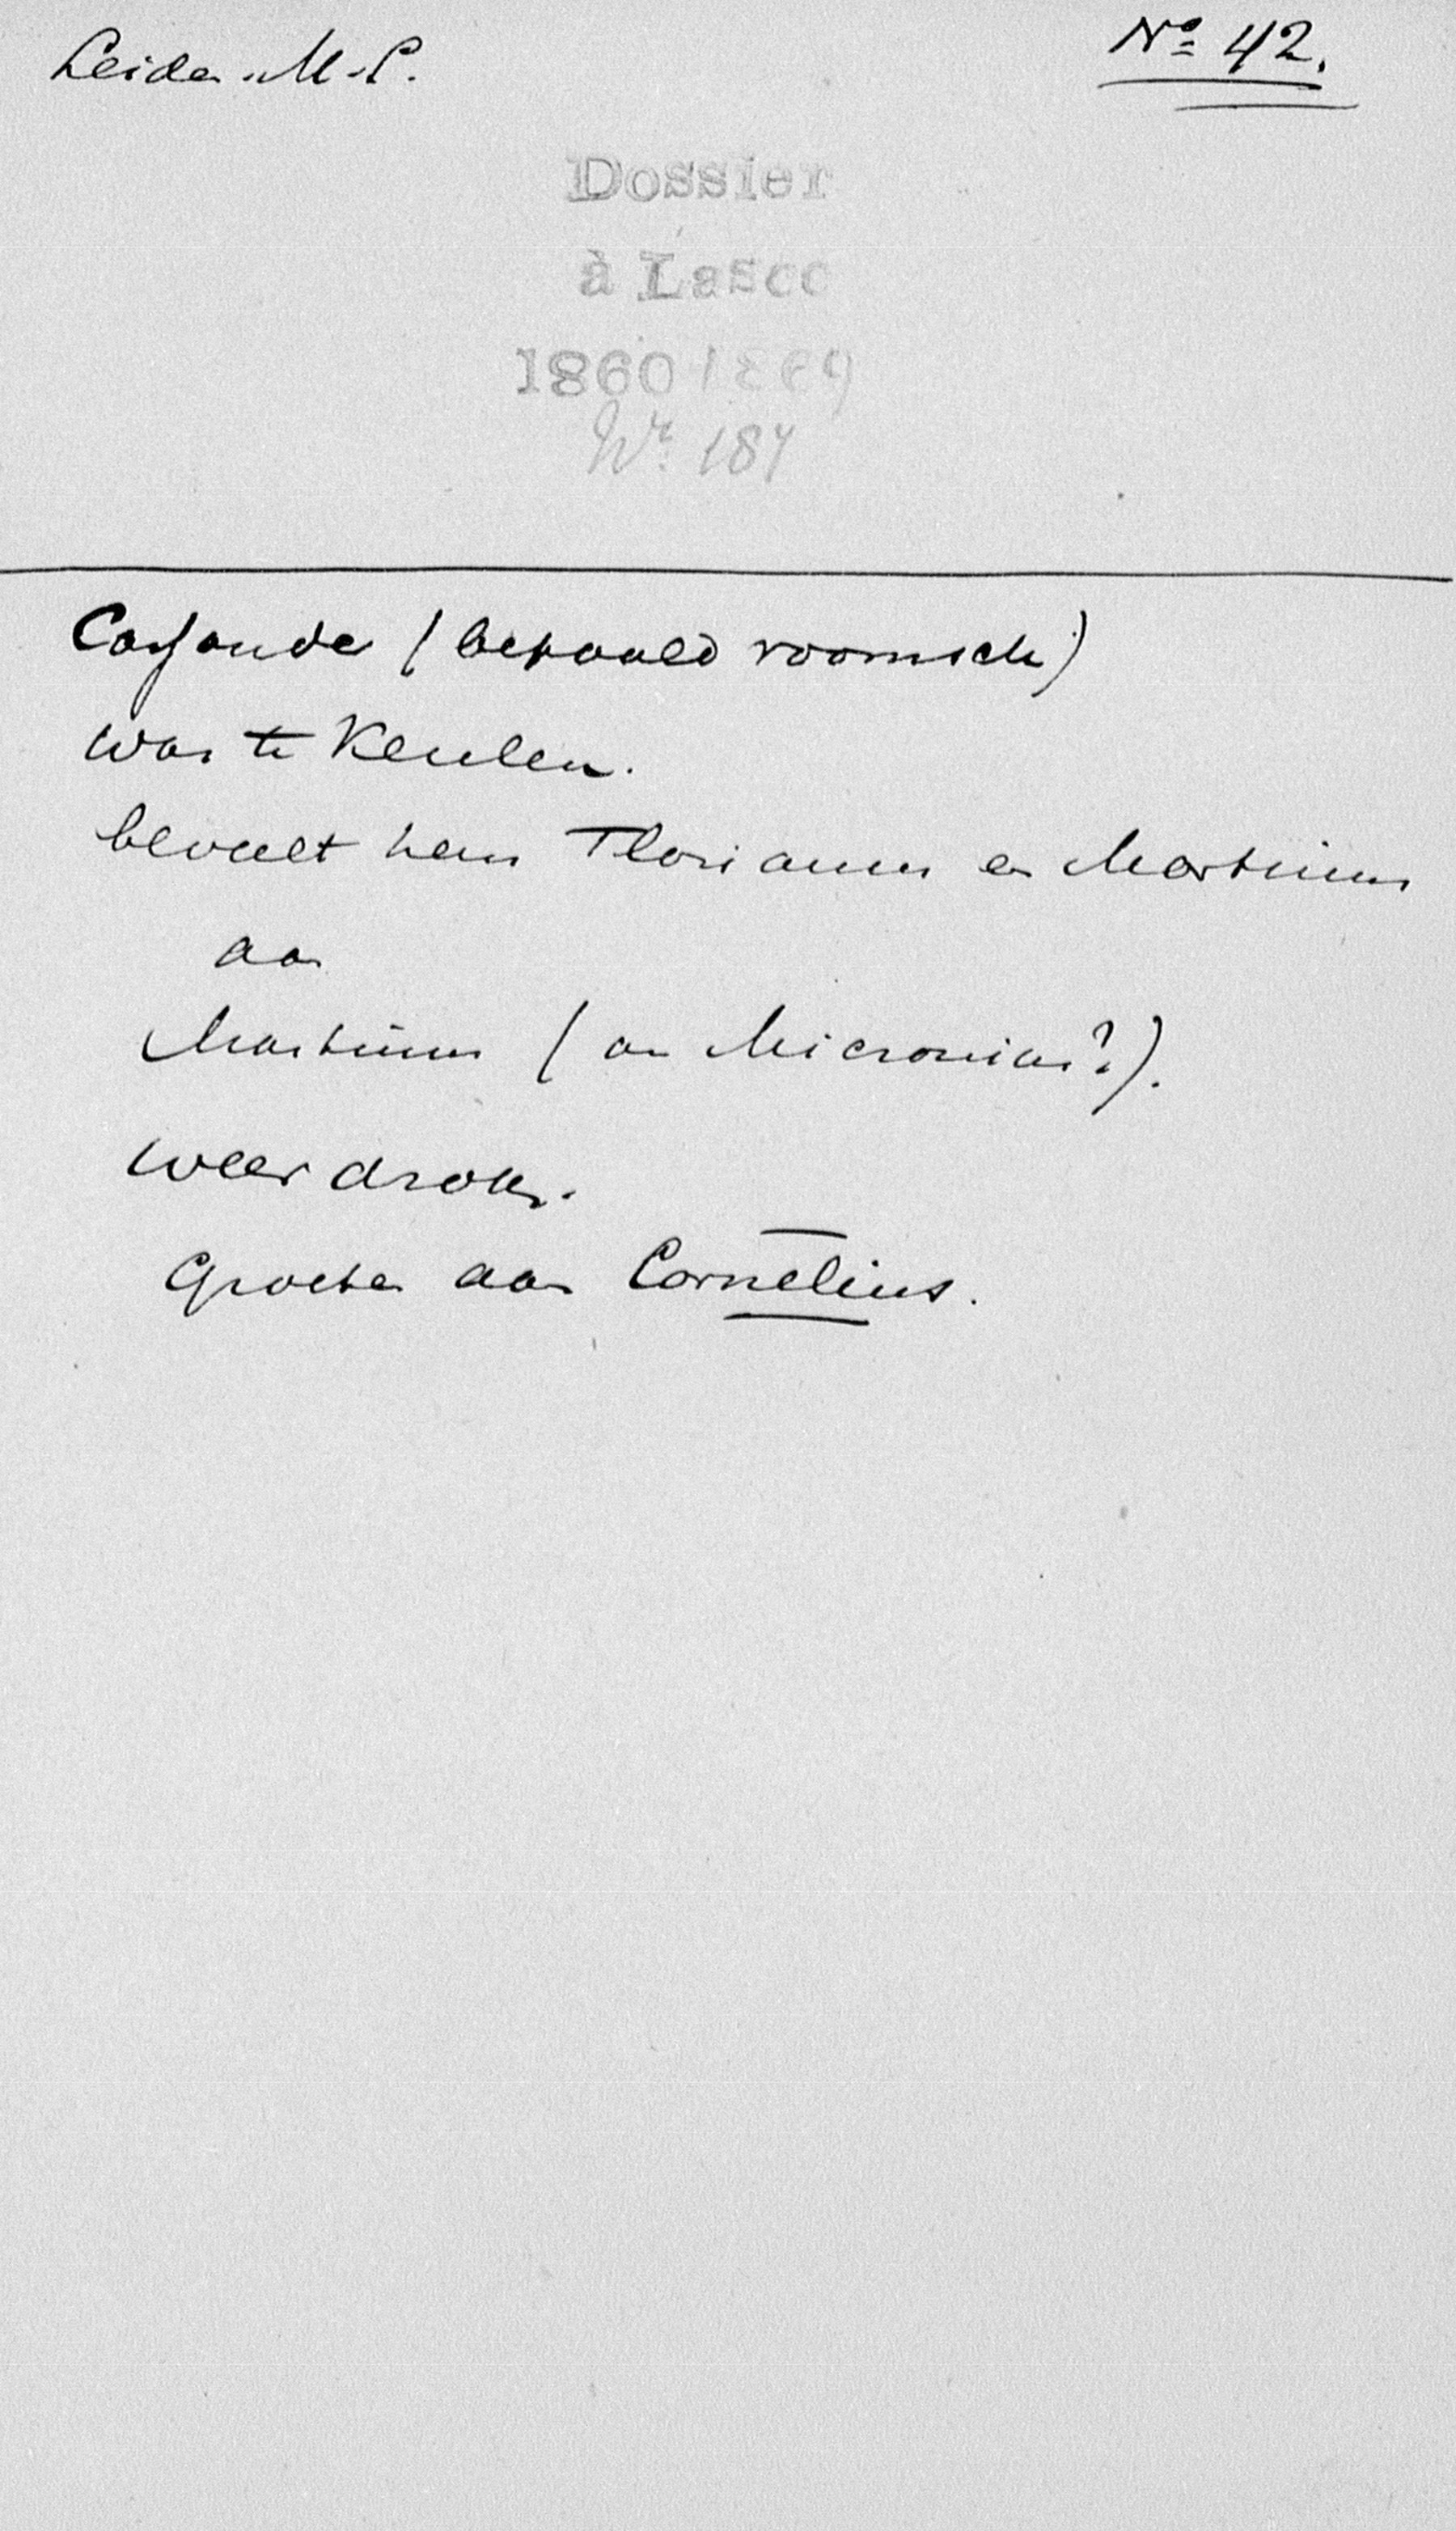 Leiden. M.S. Nº 42.
Dossier
à Lasco
1860 1869
Nr. 187
Cassander (bepaald roomsch)
was te Keulen.
beveelt hem Florianus en Martinus
aan
Martinus (an Micronius?).
weer
Groeten aan Cornelius.